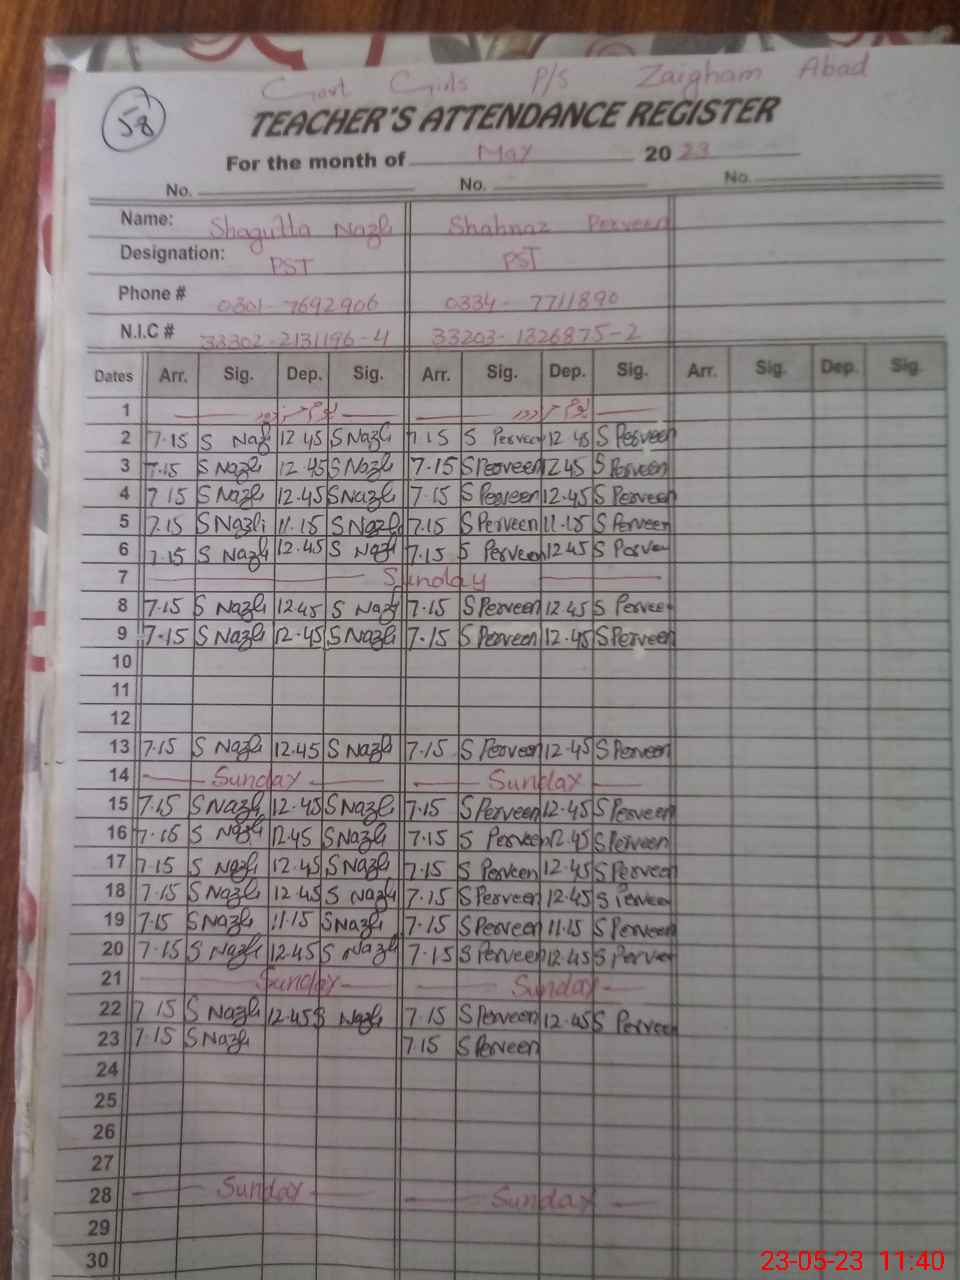 Govt Girls P/S Zaigham Abad
58
TEACHER'S ATTENDANCE REGISTER
For the month of May 2023
No. No. No.
Name: Shagufta Nazli Shahnaz Perveen
Designation: PST PST
Phone # 0301-7692906 0334-7711890
N.I.C # 33302-2131196-4 33203-1326875-2
Dates Arr. Sig. Dep. Sig. Arr. Sig. Dep. Sig. Arr. Sig. Dep. Sig.
1 یوم مزدور یوم مزدور
2 7.15 S Nazli 12.45 S Nazli 7.15 S Perveen 12.45 S Perveen
3 7.15 S Nazli 12.45 S Nazli 7.15 S Perveen 12.45 S Perveen
4 7.15 S Nazli 12.45 S Nazli 7.15 S Perveen 12.45 S Perveen
5 7.15 S Nazli 11.15 S Nazli 7.15 S Perveen 11.15 S Perveen
6 7.15 S Nazli 12.45 S Nazli 7.15 S Perveen 12.45 S Perveen
7 Sunday
8 7.15 S Nazli 12.45 S Nazli 7.15 S Perveen 12.45 S Perveen
9 7.15 S Nazli 12.45 S Nazli 7.15 S Perveen 12.45 S Perveen
10
11
12
13 7.15 S Nazli 12.45 S Nazli 7.15 S Perveen 12.45 S Perveen
14 Sunday Sunday
15 7.15 S Nazli 12.45 S Nazli 7.15 S Perveen 12.45 S Perveen
16 7.15 S Nazli 12.45 S Nazli 7.15 S Perveen 12.45 S Perveen
17 7.15 S Nazli 12.45 S Nazli 7.15 S Perveen 12.45 S Perveen
18 7.15 S Nazli 12.45 S Nazli 7.15 S Perveen 12.45 S Perveen
19 7.15 S Nazli 11.15 S Nazli 7.15 S Perveen 11.15 S Perveen
20 7.15 S Nazli 12.45 S Nazli 7.15 S Perveen 12.45 S Perveen
21 Sunday Sunday
22 7.15 S Nazli 12.45 S Nazli 7.15 S Perveen 12.45 S Perveen
23 7.15 S Nazli 7.15 S Perveen
24
25
26
27
28 Sunday Sunday
29
30
23-05-23 11:40